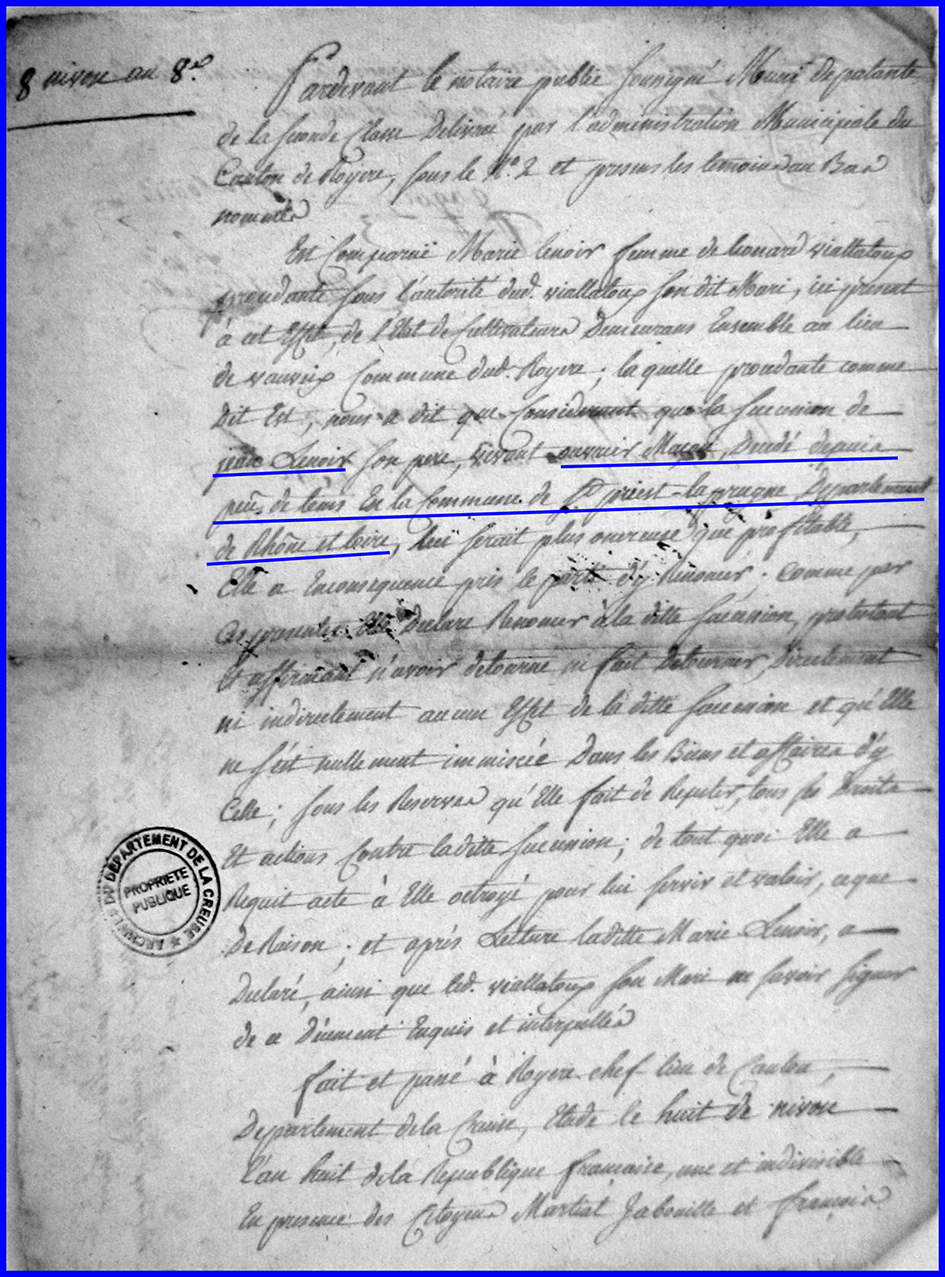 8 nivose an 8e
Pardevant le notaire public soussigné Muni depatante
de la seconde Classe Delivré par l'administration Municipale du
Canton de Royere, sous le N.º 2 et presens les temoins au Bas
nommés
Est Comparue Marie lenoir femme de leonard viallatoux
procedante sous l'autorité dud. viallatoux son dit Mari, ici présent
à cet Effet, de l'Etat de Cultivateurs Demeurans Ensemble au lieu
de vauveix Commune dud. Royere ; la quelle procedante comme
Dit Est, nous a dit que Considerant que la succession de
jean Lenoir son pere, vivant ouvrier Maçon, Decedé depuis
peu de tems En la Commune de St priest-la prugne Departement
de Rhône et loire, lui serait plus onereuse que profitable,
Elle a Enconsequence pris le parti d'y Renoncer. Comme par
Ces presentes Elle Declare Renoncer à la ditte succession, protestant
Et affirmant n'avoir detourné ni fait Detourner, Directement
ni indirectement aucun Effet de la ditte succession et qu'Elle
ne s'est nullement immiscée Dans les Biens et affaires d'y
Celle ; sous les Reserves qu'Elle fait de Repeter, tous ses Droits
Et actions Contre laditte succession ; de tout quoi Elle a
Requit acte à Elle octroyé pour lui servir et valoir, ceque
De Raison ; et après Lecture laditte Marie Lenoir, a
Declaré, ainsi que led. viallatoux son Mari ne savoir signer
de ce Duement Enquis et interpellés
fait et passé à Royere chef lieu de Canton,
Departement dela Creuse, Etude le huit de nivose
l'an huit dela Republique francaise, une et indivisible
En presence des Citoyens Martial Jabouille et françois
ARCHIVES DU DEPARTEMENT DE LA CREUSE
PROPRIETE
PUBLIQUE